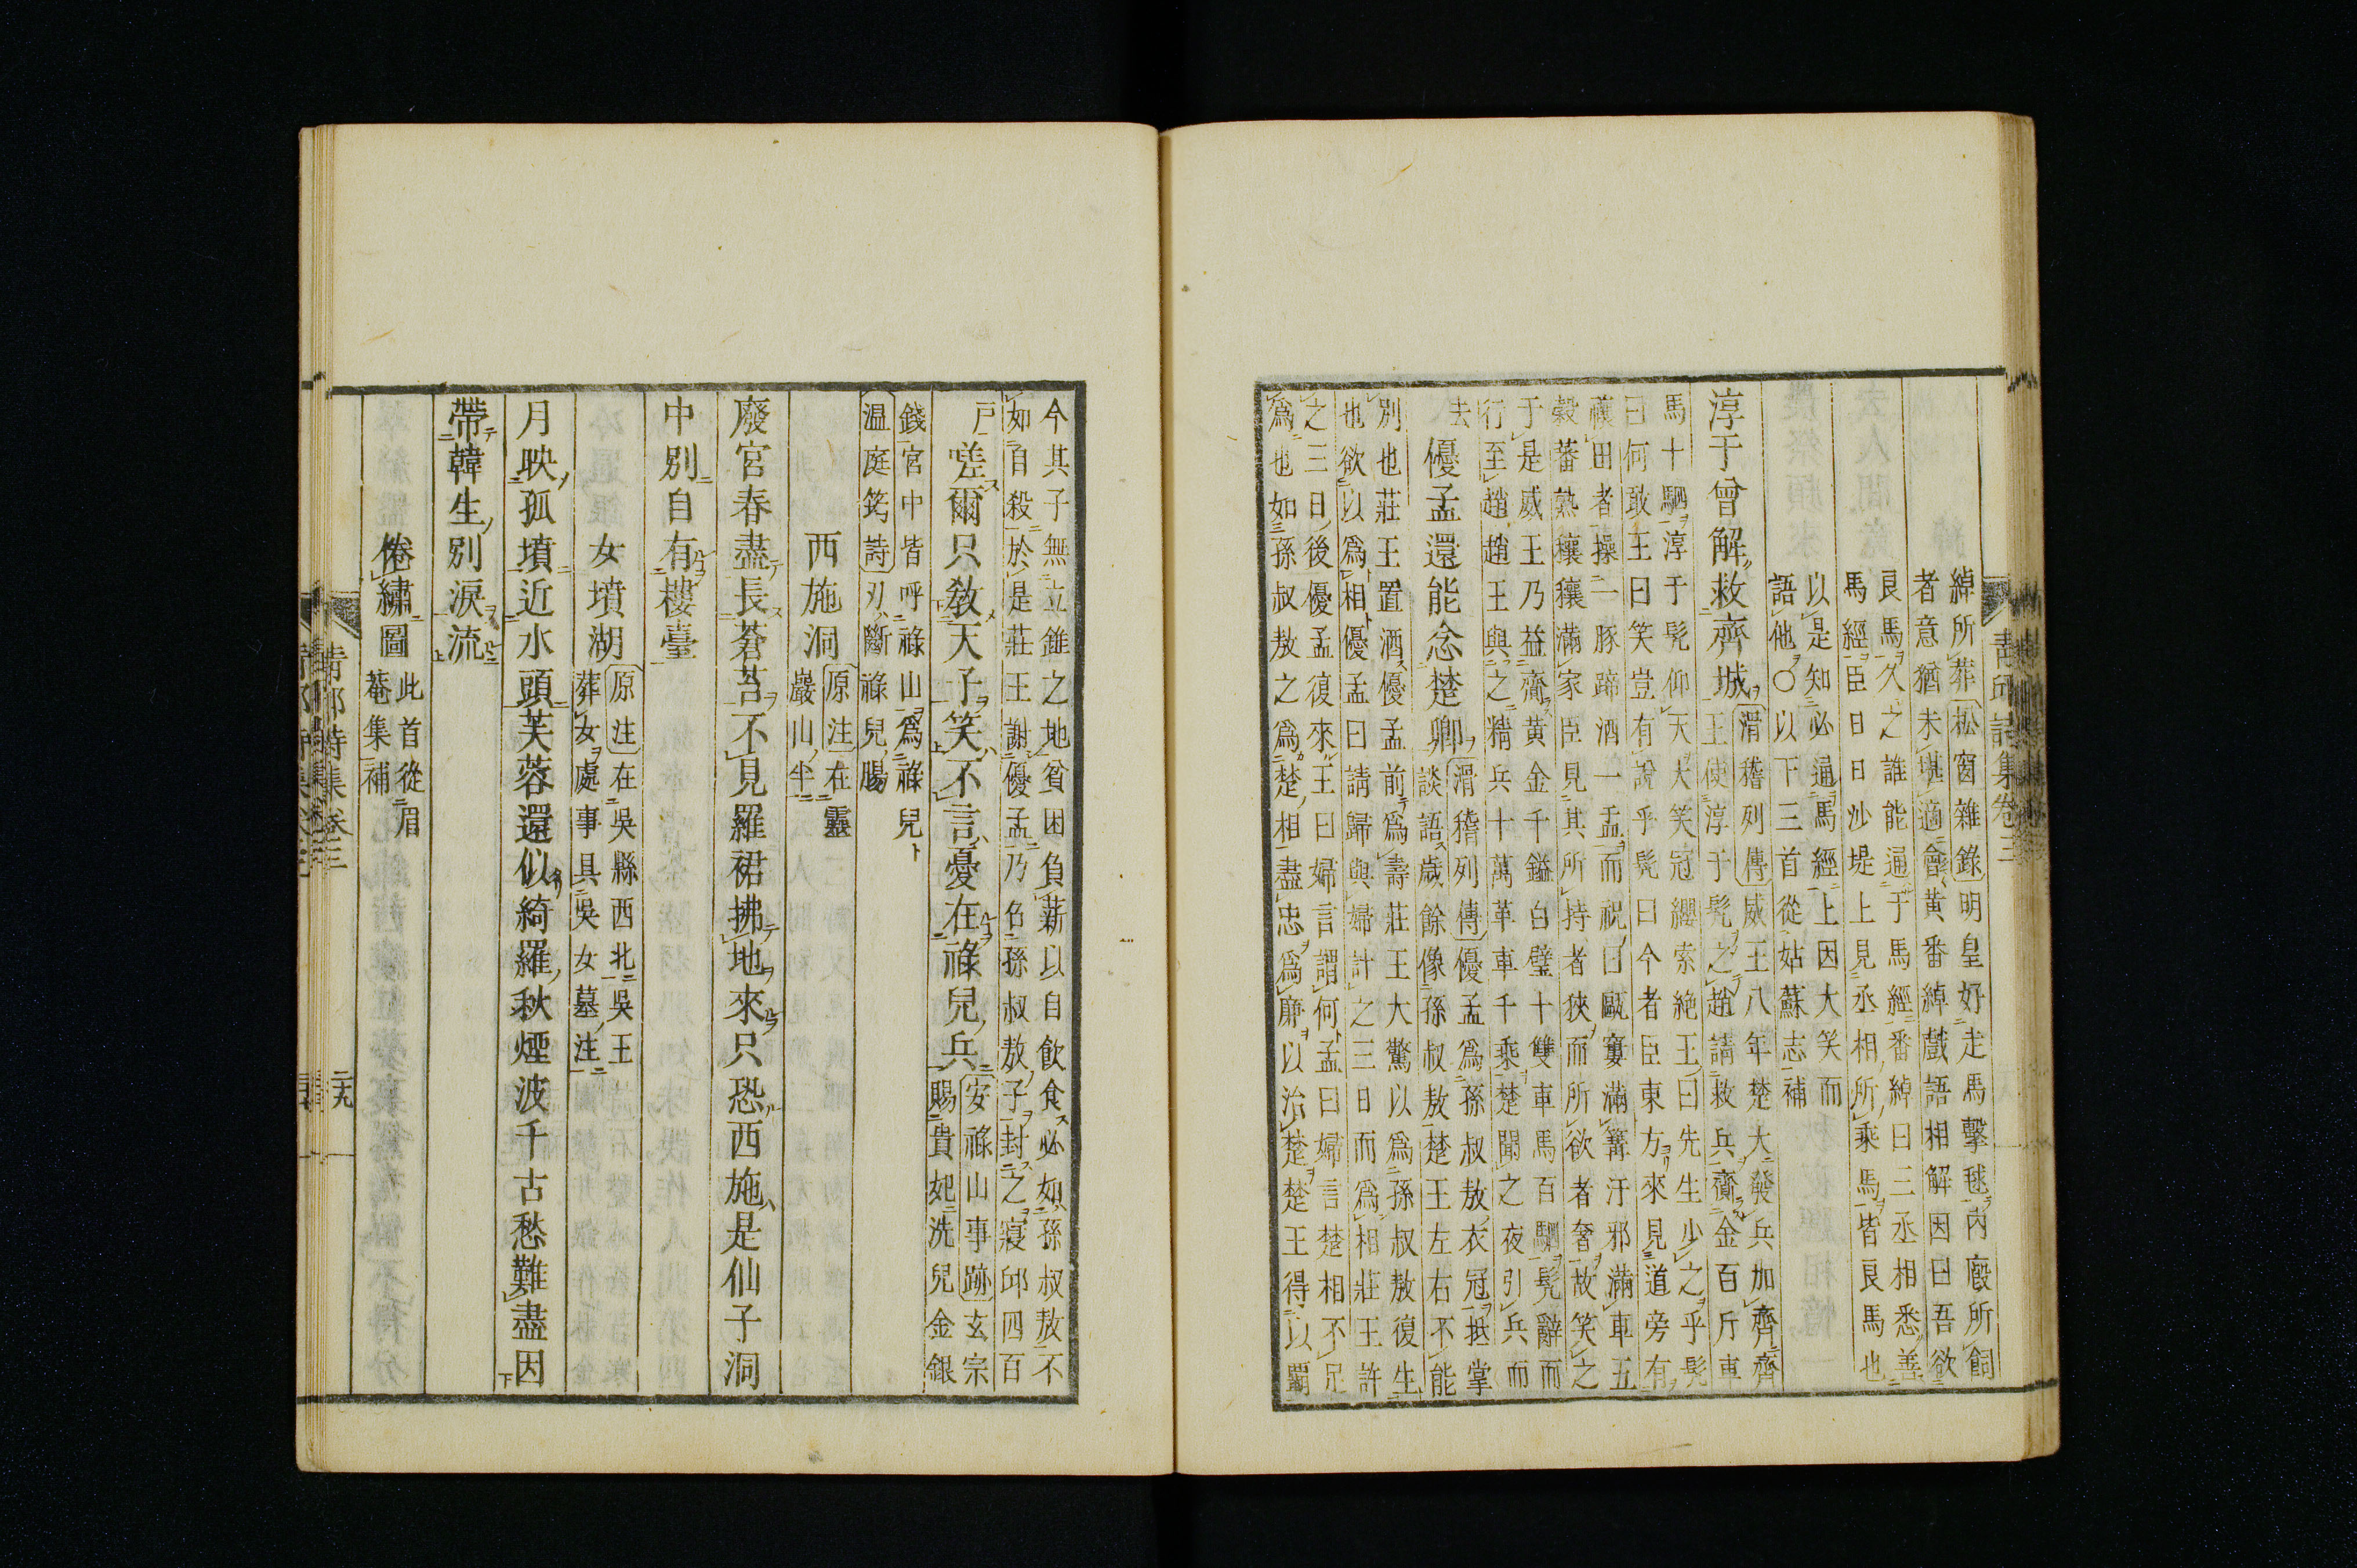 綽所葬松窗雜錄明皇好走馬擊毬內廐所飼
者意猶未堪適會黃番綽戲語相解因曰吾欲
良馬久之誰能通于馬經番綽曰三丞相悉善
馬經臣日日沙堤上見丞相所乘馬皆良馬也
以是知必通馬經上因大笑而
語他〇以下三首從姑蘇志補
淳于曾解救齊城
滑稽列傳威王八年楚大發兵加齊齊
王使淳于髡之趙請救兵齎金百斤車
馬十駟淳于髡仰天大笑冠纓索絶王曰先生少之乎髡
曰何敢王曰笑豈有說乎髡曰今者臣東方來見道旁有
禳田者操一豚蹄酒一盂而祝曰甌窶滿篝汙邪滿車五
穀蕃熟穰穰滿家臣見其所持者狹而所欲者奢故笑之
于是威王乃益齎黃金千鎰白璧十雙車馬百駟髡辭而
行至趙趙王與之精兵十萬革車千乘楚聞之夜引兵而
去
優孟還能念楚卿
滑稽列傳優孟爲孫叔敖衣冠抵掌
談語歲餘像孫叔敖楚王左右不能
別也莊王置酒優孟前爲壽莊王大驚以爲孫叔敖復生
也欲以爲相優孟曰請歸與婦計之三日而爲相莊王許
之三日後優孟復來王曰婦言謂何孟曰婦言楚相不足
爲也如孫叔敖之爲楚相盡忠爲廉以治楚楚王得以霸
青邱詩集卷三
今其子無立錐之地貧困負薪以自飲食必如孫叔敖不
如自殺於是莊王謝優孟乃召孫叔敖子封之寢邱四百
戸
嗟爾只敎天子笑不言憂在祿兒兵
安祿山事跡玄宗
賜貴妃洗兒金銀
錢宮中皆呼祿山爲祿兒
温庭筠詩刃斷祿兒腸
西施洞
原注在靈
巖山半
廢宮春盡長蒼苔不見羅裙拂地來只恐西施是仙子洞
中別自有樓臺
女墳湖
原注在吳縣西北吳王
葬女處事具吳女墓注
月映孤墳近水頭芙蓉還似綺羅秋煙波千古愁難盡因
帶韓生別淚流
倦繡圖
此首從眉
菴集補
青邱詩集卷三
二十九